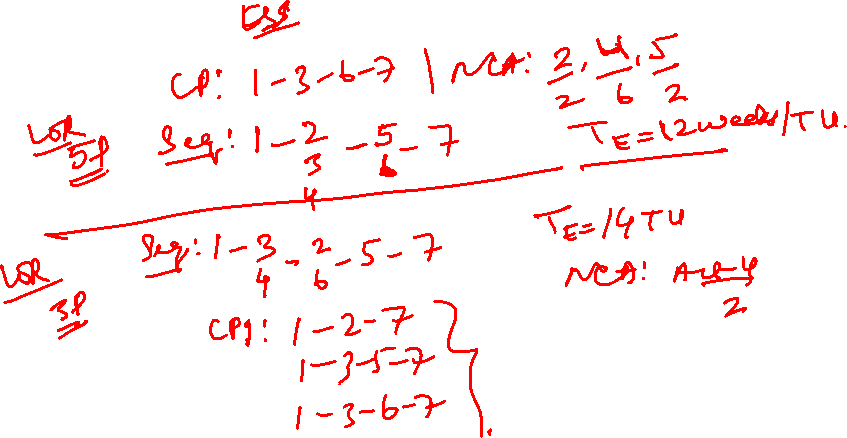 ESS
CP: 1-3-6-7 | NCA: 2/2, 4/6, 5/2
LOR 5P
Seq: 1 - 2 - 5 - 7
3 6
4
TE = 12 weeks/TU.
LOR 3P
Seq: 1 - 3 - 2 - 5 - 7
4 6
TE = 14 TU
NCA:
2
CPs: 1-2-7
1-3-5-7
1-3-6-7